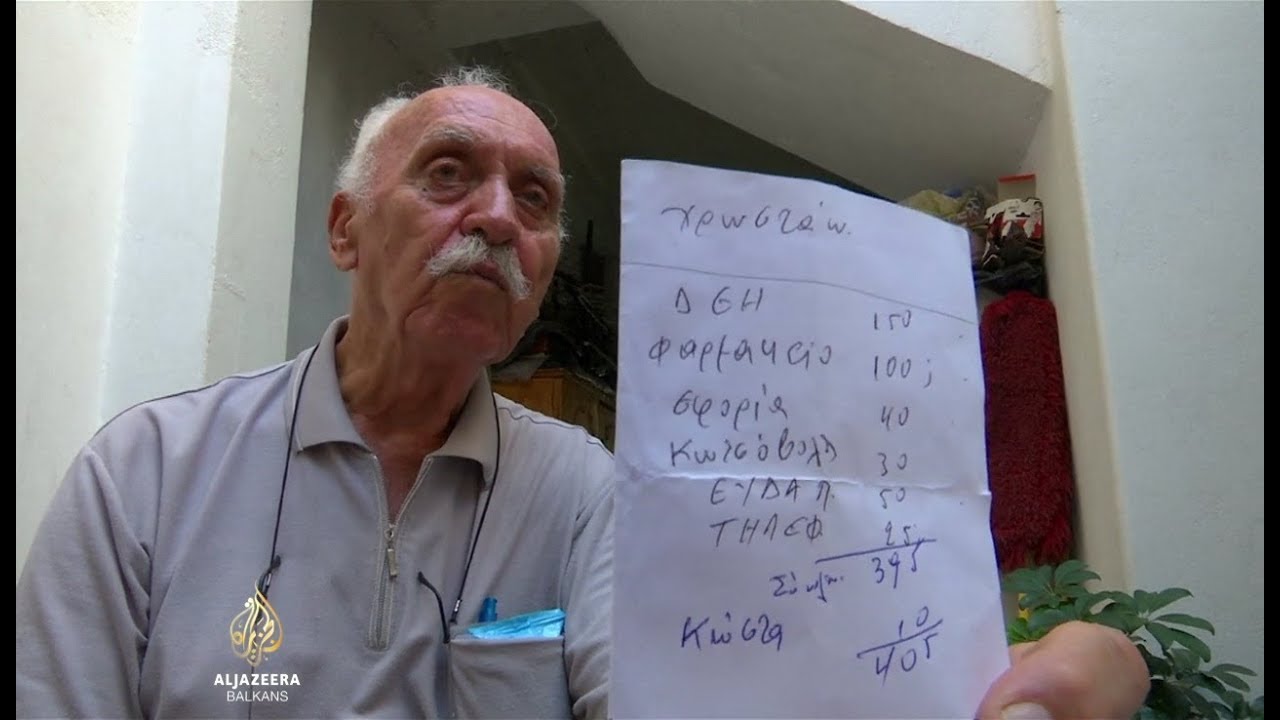 χρωστάω.
ΔΕΗ 150
Φαρμακείο 100;
εφορία 40
Κωτσόβολη 30
ΕΥΔΑΠ. 50
ΤΗΛΕΦ 25
395
Κώστα 10
405
ALJAZEERA
BALKANS